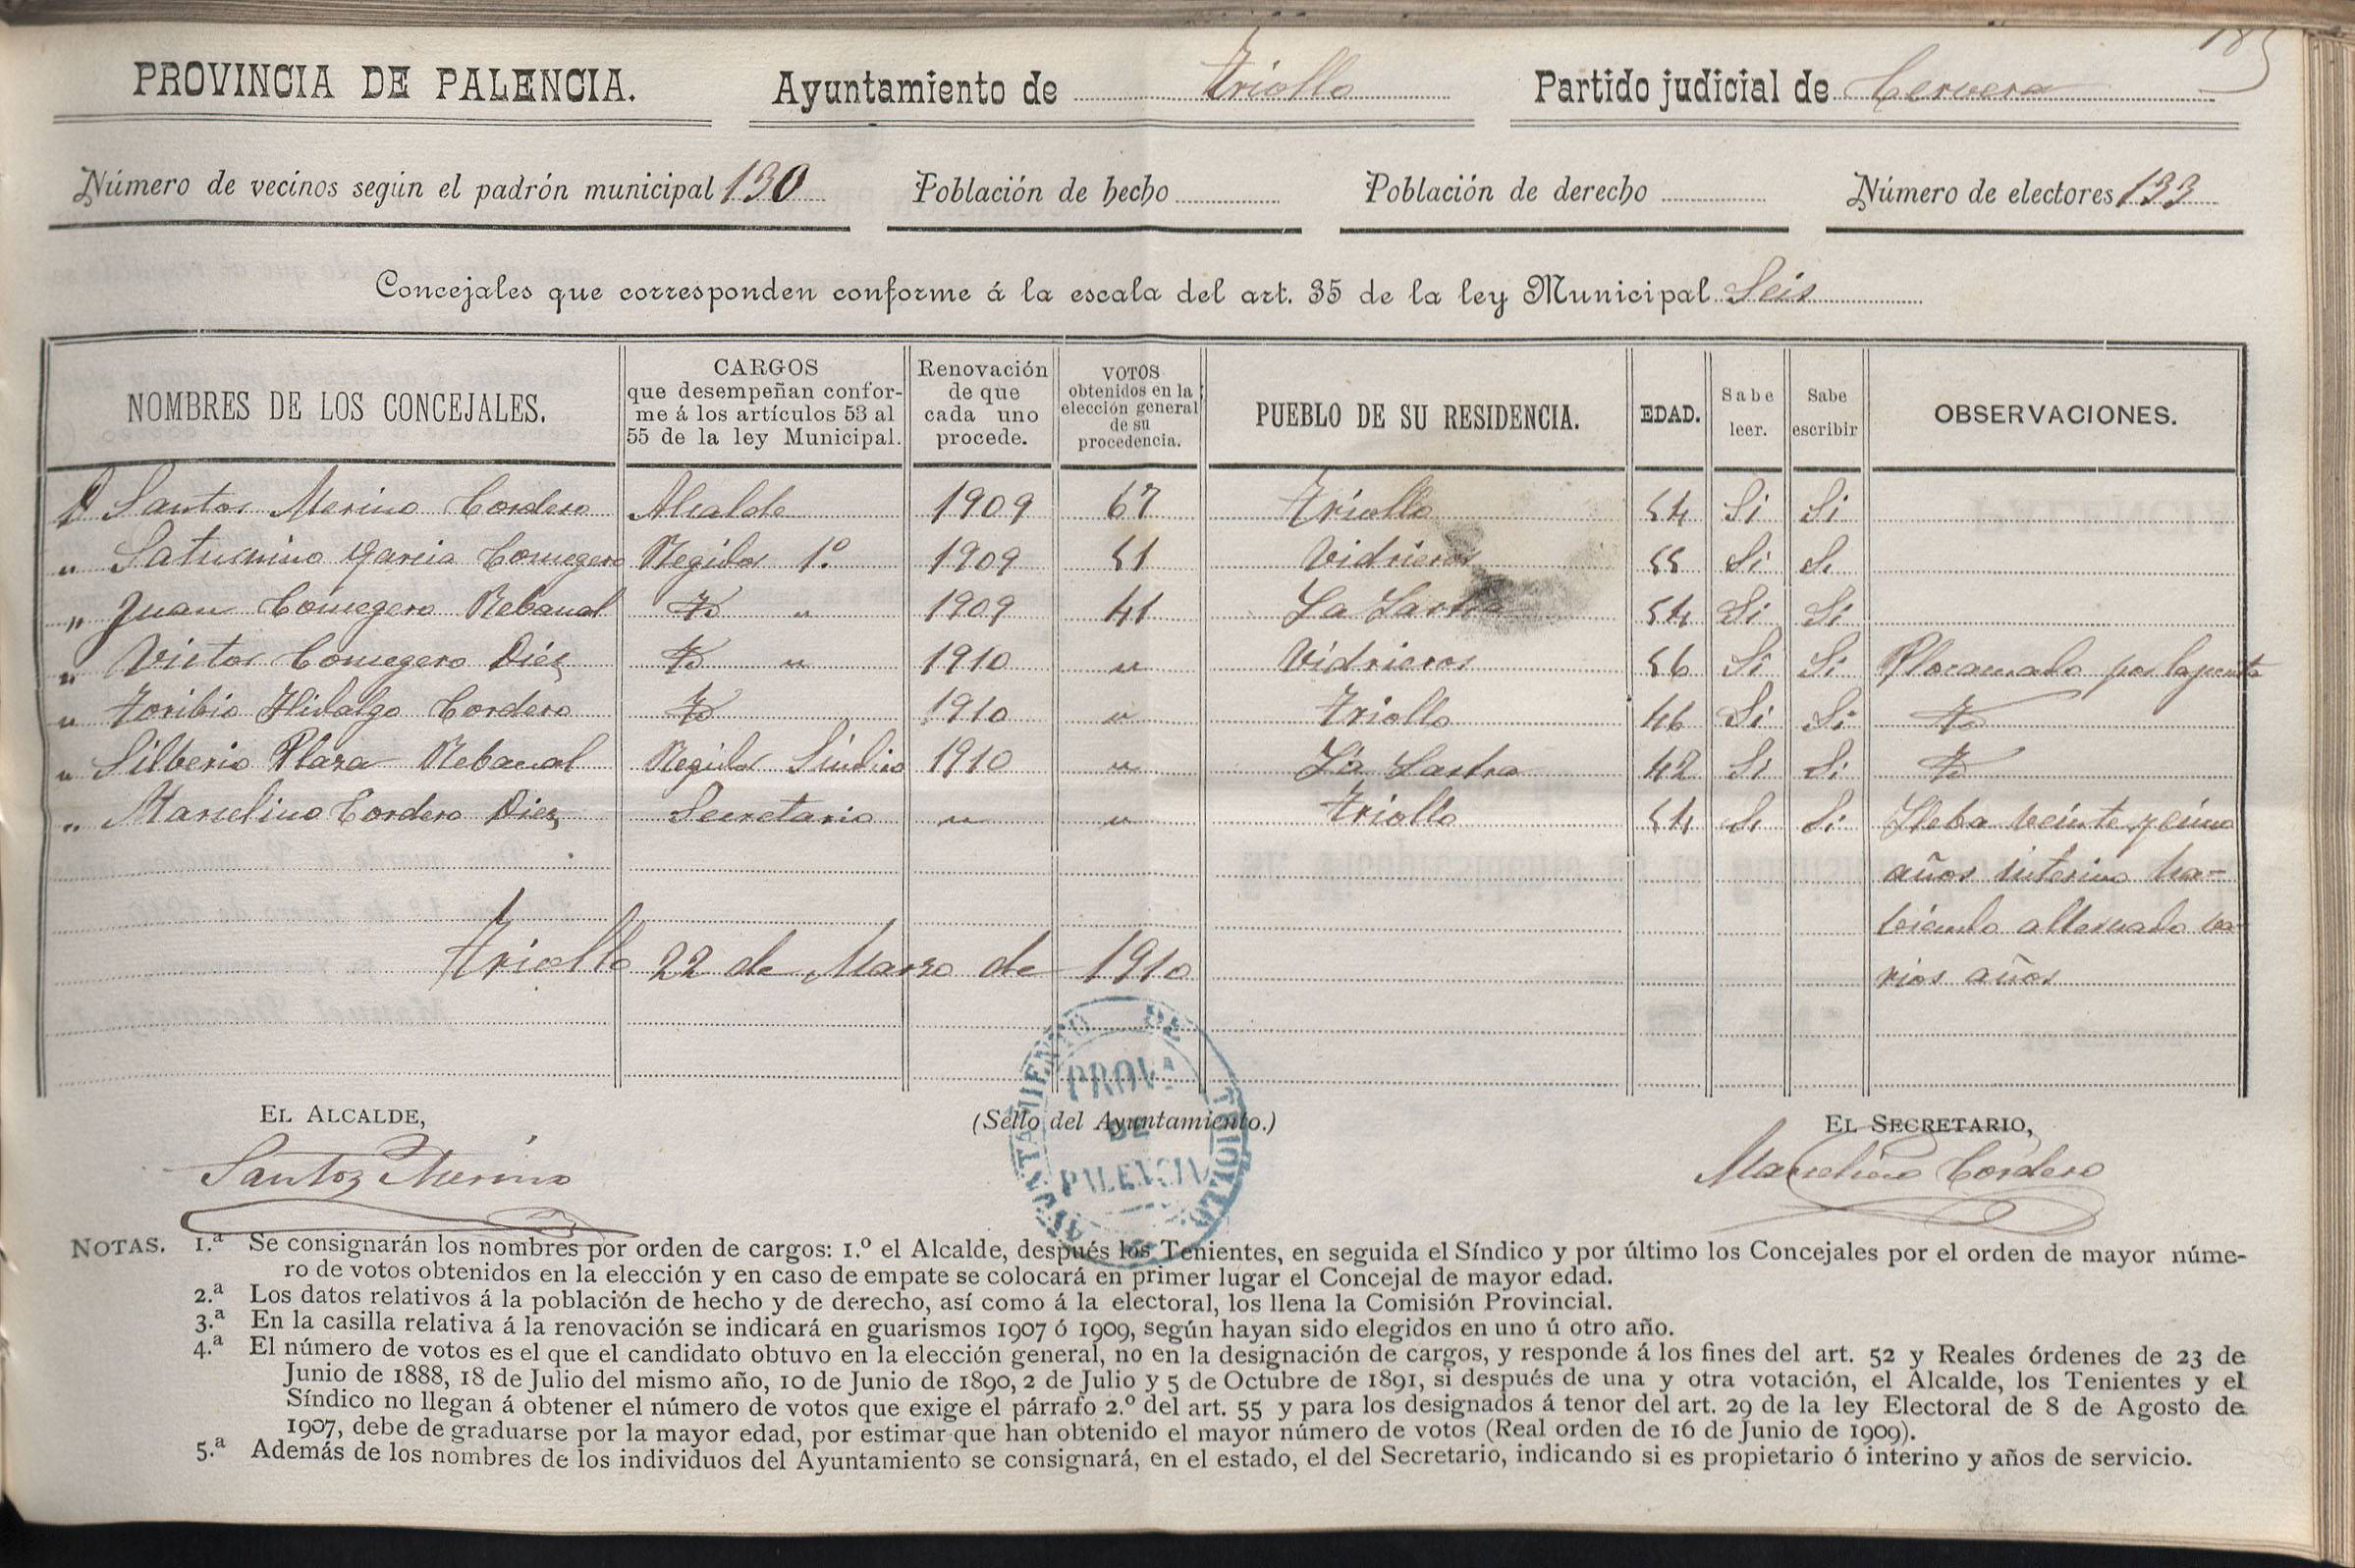 185
PROVINCIA DE PALENCIA. Ayuntamiento de Triollo Partido judicial de Cervera
Número de vecinos según el padrón municipal 130 Población de hecho Población de derecho Número de electores 133
Concejales que corresponden conforme á la escala del art. 35 de la ley Municipal Seis
NOMBRES DE LOS CONCEJALES. CARGOS que desempeñan confor- me á los artículos 53 al 55 de la ley Municipal. Renovación de que cada uno procede. VOTOS obtenidos en la elección general de su procedencia. PUEBLO DE SU RESIDENCIA. EDAD. Sabe leer. Sabe escribir OBSERVACIONES.
D Santos Merino Cordero Alcalde 1909 67 Triollo 54 Si Si
" Saturnino Garcia Comegero Regidor 1.º 1909 51 Vidrieros 55 Si Si
" Juan Comegero Rebanal Yd " 1909 41 La Lastra 54 Si Si
" Victor Comegero Diez Yd " 1910 " Vidrieros 56 Si Si Plocamado por la junta
" Toribio Hidalgo Cordero Yd 1910 " Triollo 46 Si Si Yd
" Silberio Plaza Rebanal Regidor Sindico 1910 " La Lastra 42 Si Si Yd
" Marcelino Cordero Diez Secretario " " Triollo 54 Si Si Lleba veinte y cinco
años interino ha-
biendo alternado va-
rios años
Triollo 22 de Marzo de 1910
EL ALCALDE, (Sello del Ayuntamiento.) EL SECRETARIO,
AYUNTAMIENTO DE TRIOLLO
PROV.ª
DE
PALENCIA
Santos Merino Marcelino Cordero
NOTAS. 1.ª Se consignarán los nombres por orden de cargos: 1.º el Alcalde, después los Tenientes, en seguida el Síndico y por último los Concejales por el orden de mayor núme-
ro de votos obtenidos en la elección y en caso de empate se colocará en primer lugar el Concejal de mayor edad.
2.ª Los datos relativos á la población de hecho y de derecho, así como á la electoral, los llena la Comisión Provincial.
3.ª En la casilla relativa á la renovación se indicará en guarismos 1907 ó 1909, según hayan sido elegidos en uno ú otro año.
4.ª El número de votos es el que el candidato obtuvo en la elección general, no en la designación de cargos, y responde á los fines del art. 52 y Reales órdenes de 23 de
Junio de 1888, 18 de Julio del mismo año, 10 de Junio de 1890, 2 de Julio y 5 de Octubre de 1891, si después de una y otra votación, el Alcalde, los Tenientes y el
Síndico no llegan á obtener el número de votos que exige el párrafo 2.º del art. 55 y para los designados á tenor del art. 29 de la ley Electoral de 8 de Agosto de
1907, debe de graduarse por la mayor edad, por estimar que han obtenido el mayor número de votos (Real orden de 16 de Junio de 1909).
5.ª Además de los nombres de los individuos del Ayuntamiento se consignará, en el estado, el del Secretario, indicando si es propietario ó interino y años de servicio.